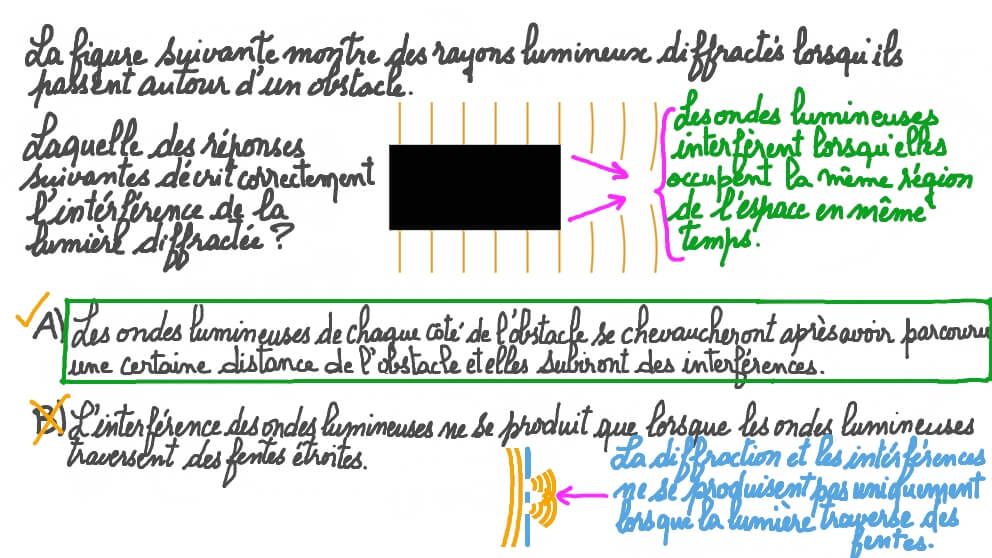 La figure suivante montre des rayons lumineux diffractés lorsqu'ils
passent autour d'un obstacle.
Laquelle des réponses
suivantes décrit correctement
l'intérférence de la
lumière diffractée ?
Les ondes lumineuses
interfèrent lorsqu'elles
occupent la même région
de l'espace en même
temps.
A) Les ondes lumineuses de chaque côté de l'obstacle se chevaucheront après avoir parcouru
une certaine distance de l'obstacle et elles subiront des interférences.
B) L'interférence des ondes lumineuses ne se produit que lorsque les ondes lumineuses
traversent des fentes étroites.
La diffraction et les intérférences
ne se produisent pas uniquement
lorsque la lumière traverse des
fentes.